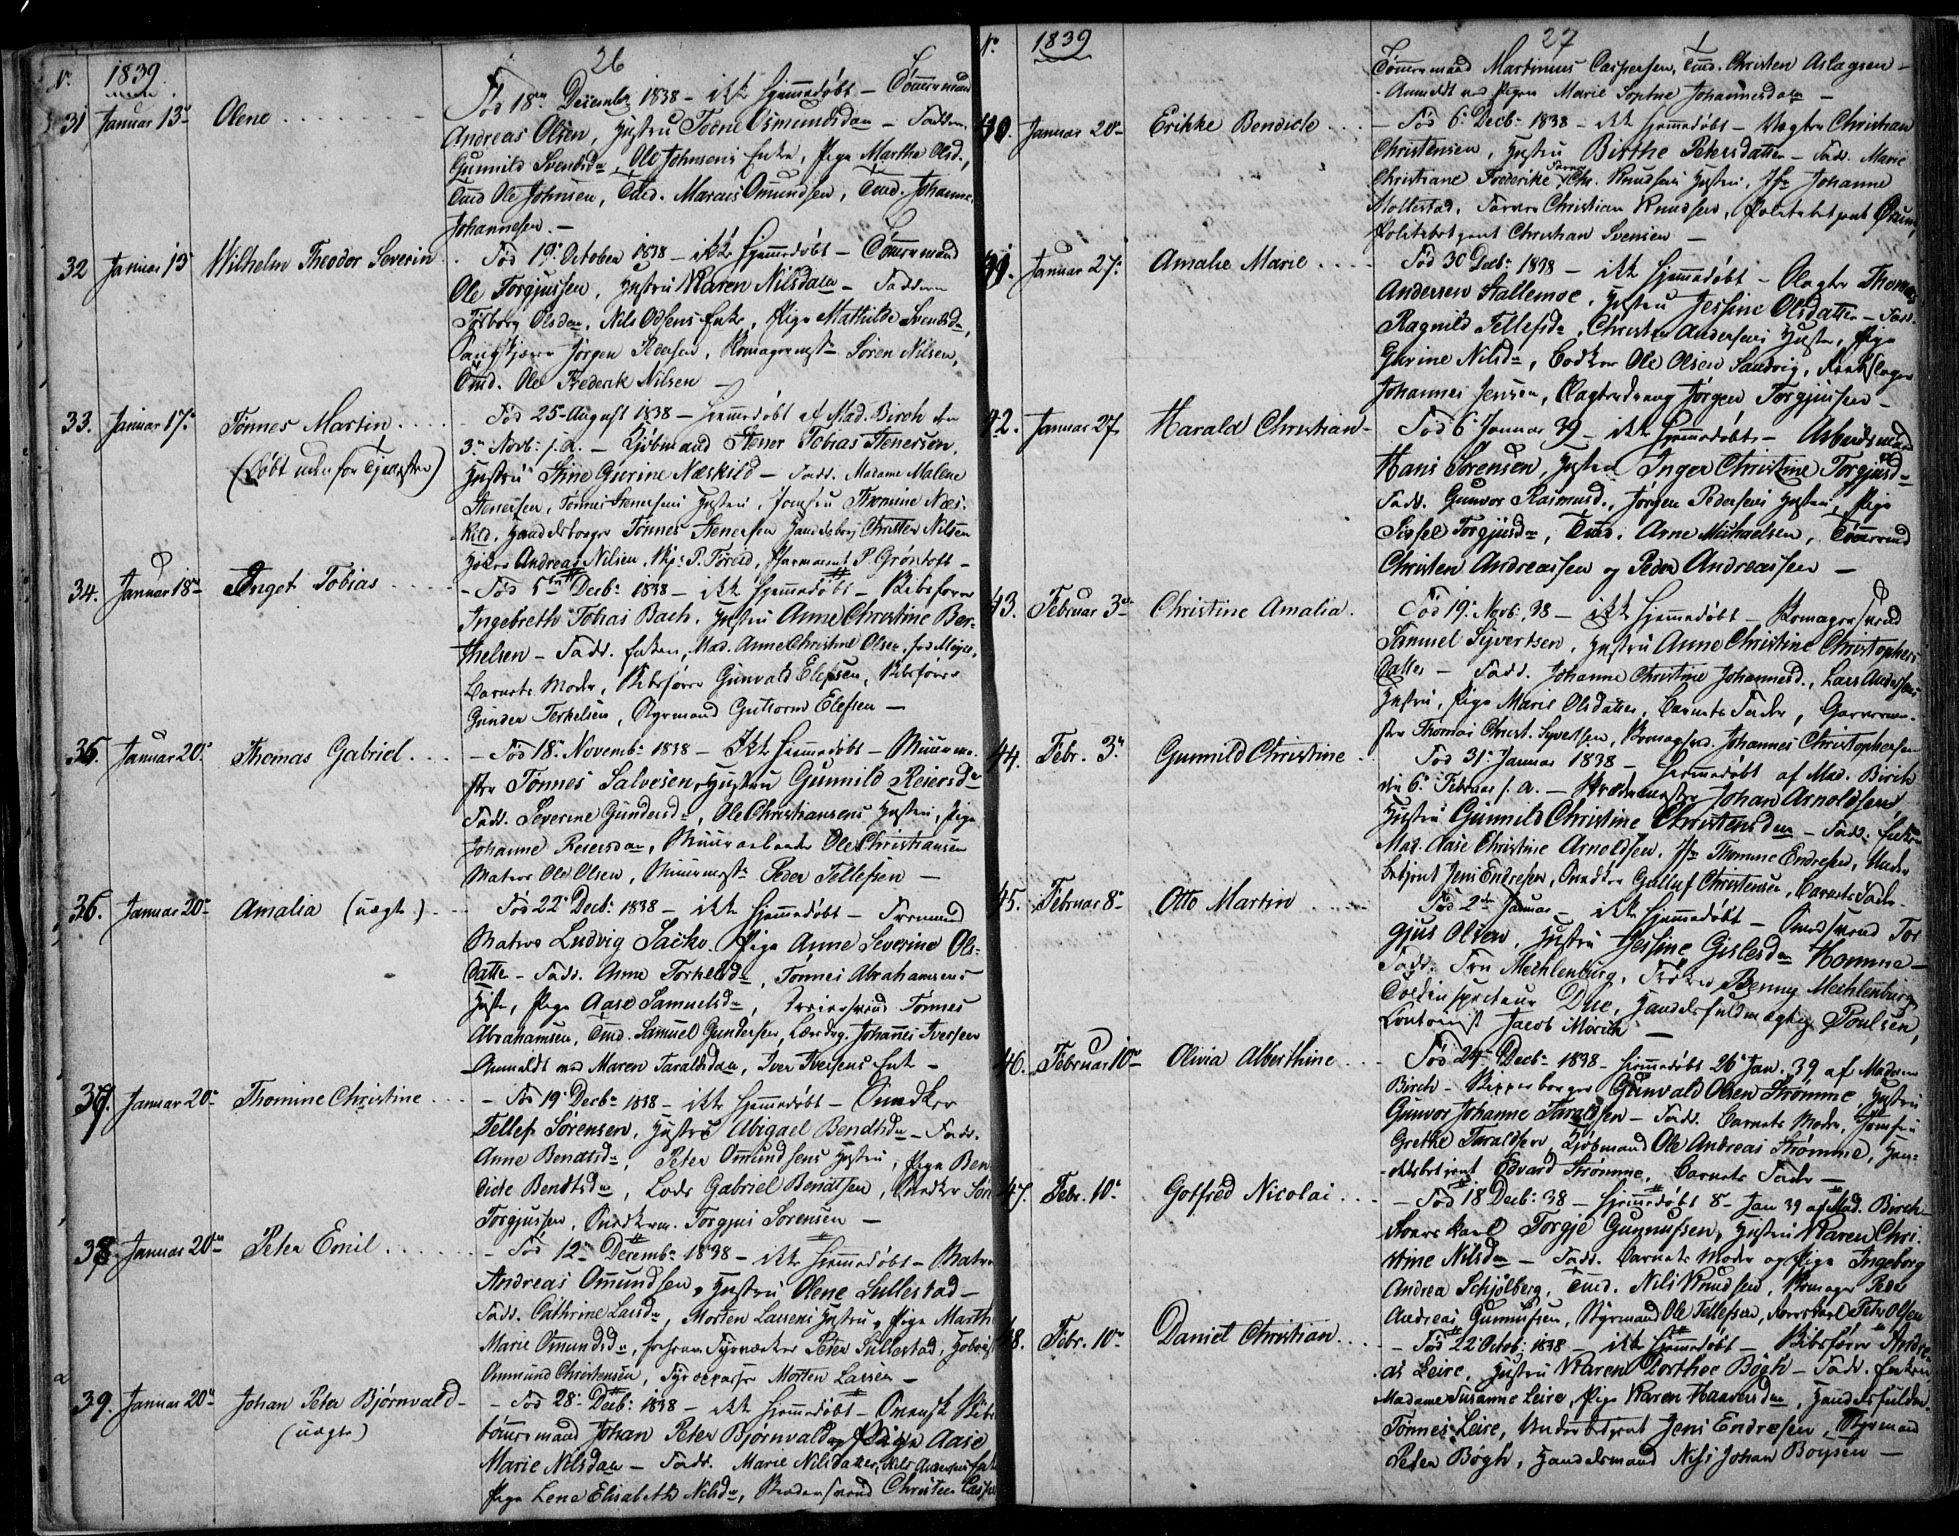 26
No 1839.
31 Januar 13de Olene
Fød 18de December 1838 – ikke hjemmedøbt – Tømmermand
Andreas Olsen, Hustru Todne Osmundsdatter – Fadd.
Gunnild Svendsdr, Ole Johnsens Enke, Pige Marthe Olsd.,
Tmd Ole Johnsen, Tmd. Marcus Omundsen, Tmd. Johannes
Johannesen. –
32 Januar 13 Wilhelm Theodor Severin
Fød 19de October 1838 – ikke hjemmedøbt – Tømmermand
Ole Torgjussen, Hustru Karen Nilsdatter – Faddere
Torborg Olsdr, Nils Odsens Enke, Pige Mathilde Svendsdr,
Jørgen Pedersen, Komagermest. Søren Nilsen,
Tmd. Ole Frederik Nilsen –
33. Januar 17de Tønnes Martin
(døbt udenfor Tjenesten)
Fød 25 August 1838 – hjemmedøbt af Mad. Birch den
3de Novb: s. A. – Kjøbmand Stener Tobias Stenersen,
Hustru Stine Gurine Næskild – Fadd. Madame Malene
Stenersen, Tønnes Stenersens Hustru, Jomfru Thomine Næs-
kild, Handelsborger Tønnes Stenersen Handelsborg. Christen Nilsen
Andreas Nilsen, P. Grøntoft –
34. Januar 18de Enget Tobias
– Fød 5te Decb: 1838 – ikke hjemmedøbt – Skibsfører
Ingebreth Tobias Bach, Hustru Anne Christine Ber-
thelsen – Fadd. Enken, Mad. Anne Christine Olsen, fød Meyer,
Barnets Moder, Skibsfører Gunvald Elefsen, Skibsfører
Gunder Terkelsen, Styrmand Guttorm Elefsen –
35. Januar 20de Thomas Gabriel
– Fød 18de Novemb: 1838 – Ikke hjemmedøbt – Muurme-
ster Tønnes Salvesen, Hustru Gunnild Reiersdr
Fadd. Severine Gundersdr, Ole Christiansens Hustru, Pige
Johanne Reiersdatter, Muurarbeider Ole Christiansen
Matros Ole Olsen, Muurmestr Peder Tellefsen –
36. Januar 20de Amalia (uægte)
Fød 22de Decb: 1838 – ikke hjemmedøbt – Fremmed
Matros Ludvig Sacko. Pige Anne Severine Ols-
datter – Fadd. Anne Torkelsdr, Tønnes Abrahamsens
Hustr, Pige Aase Samuelsdr, Tønnes
Abrahamsen, Tmd. Samuel Gundersen, Johannes Iversen
Anmeldt ved Maren Taraldsdatter, Iver Iversens Enke –
37. Januar 20de Thomine Christine
– Fød 19de Decbr 1838 – ikke hjemmedøbt – Snedker
Tellef Sørensen, Hustru Abigael Bendtsdr – Fadd.
Anne Bendtsdr, Peter Omundsens Hustru, Pige Ben-
dicte Bendtsdr, Lods Gabriel Bendtsen, Snedker Søren
Torgjussen, Snedkersv. Torgjus Sørensen –
38. Januar 20de Peter Emil
– Fød 12te Decembr 1838 – ikke hjemmedøbt – Matros
Andreas Omundsen, Hustru Olene Sullestad –
Fadd. Cathrine Larsdr, Morten Larsens Hustru, Pige Marthe
Marie Omundsdr, Peter Sullestad,
Ommund Christensen, Morten Larsen –
39. Januar 20de Johan Peter Bjørnvald
(uægte)
– Fød 28de Decb: 1838 – ikke hjemmedøbt – Svensk Skibs-
tømmermand Johan Peter Bjørnvald og Pige Aase
Marie Nilsdatter – Fadd. Marie Nilsdatter, Nils Andersens Enke
Pige Lene Elisabeth Nilsdr, Christen Caspersen
27
No 1839
Tømmermand Martinius Caspersen, Tmd. Christen Aslagsen –
Anmeldt ved Pigen Marie Sophie Johannesdatter –
40. Januar 20de Erikke Bendicte
– Fød 6te Decb: 1838 – ikke hjemmedøbt – Vægter Christian
Christensen, Hustru Birthe Petersdatter – Fadd. Marie
Christiane Frederike, Farver Chr. Knudsens Hustru, Jfr Johanne
Mollestad, Farver Christian Knudsen, Politibetjent
Politibetjent Christian Svensen –
41. Januar 27de Amalie Marie
Fød 30 Decb: 1838 – ikke hjemmedøbt – Slagter Thomas
Andersen Stallemoe, Hustru Jessine Olsdatter – Fadd.
Ragnild Tellefsdr, Christen Andersens Hustru, Pige
Gurine Nilsdr, Bødker Ole Olsen Sandvig, Rebslager
Johannes Jensen, Slagterdreng Jørgen Torgjussen –
42. Januar 27 Harald Christian
Fød 6 Januar 39 – ikke hjemmedøbt – Arbeidsmand
Hans Sørensen, Hustru Inger Christine Torgjusdr
Fadd. Gunvor Rasmusd., Jørgen Pedersens Hustru, Pige
Sissel Torgjusdr, Tmd. Arne Michaelsen, Tømmermd
Christen Andreassen og Peder Andreassen –
43. Februar 3de Christine Amalia.
Fød 19de Novb: 38 – ikke hjemmedøbt – Komagersvend
Samuel Syvertsen, Hustru Anne Christine Christophers-
datter – Fadd. Johanne Christine Johannesd., Lars Andersens
Hustru, Pige Marie Olsdatter, Barnets Fader, Garverme-
ster Thomas Christ. Syvertsen, Komagsvd. Johannes Christophersen
44. Febr. 3de Gunnild Christine
Fød 31te Januar 1838 – hjemmedøbt af Mad. Birch
den 6te Februar s. A. – Johan Arnoldsen
Hustru Gunnild Christine Christensdatter – Fadd. Enken
Mad. Aase Christine Arnoldsen, Jfr Thomine Endresen, Under-
betjent Jens Endresen, Snedker Gulluf Christensen, Barnets Fader
45. Februar 8de Otto Martin
Fød 2den Januar – ikke hjemmedøbt – Smedsvend Tor-
gjus Olsen, Hustru Jessine Gislesdr Homme –
Fadd. Fru Mechlenburg, Frøken Benny Mechlenburg,
Toldinspecteur Due, Handelsfuldmægtig Poulsen,
Contorist Jacob Mörch –
46. Februar 10de Olivia Alberthine
– Fød 24de Decb: 1838 – hjemmedøbt 26de Jan. 39 af Madam
Birch – Skipperborger Gunvald Olsen Strømme, Hustru
Gunvor Johanne Taraldsen – Fadd. Barnets Moder, Jomfru
Grethe Taraldsen, Kjøbmand Ole Andreas Strømme, Han-
delsbetjent Edvard Strømme, Barnets Fader –
47. Febr. 10de Gotfred Nicolai
– Fød 18 Decb: 38 – hjemmedøbt 8de Jan 39 af Mad. Birch –
Torgje Gunnufsen, Hustru Karen Chri-
stine Nilsdr – Fadd. Barnets Moder og Pige Ingeborg
Andrea Schjølberg, Tmd. Nils Knudsen, Komager Peder
Andreas Gunnufsen, Styrmand Ole Tellefsen, Peter Olsen
48. Febr. 10de Daniel Christian
– Fød 22 Octob: 1838 – ikke hjemmedøbt – Skibsfører Andre-
as Leire, Hustru Karen Dorthee Bøgh – Fadd. Enken
Madame Susanne Leire, Pige Karen Haavesdr, Handelsfuldm.
Tønnes Leire, Underbetjent Jens Endresen, Styrmand
Peder Bøgh, Handelsmand Nils Johan Boysen –